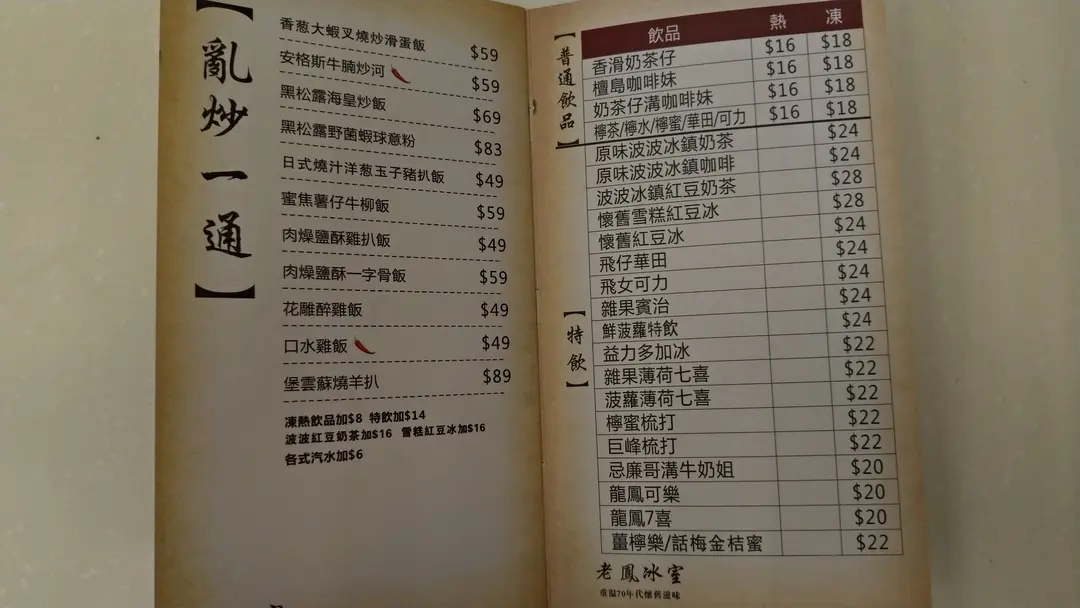 【亂炒一通】
香葱大蝦叉燒炒滑蛋飯 $59
安格斯牛腩炒河 $59
黑松露海皇炒飯 $69
黑松露野菌蝦球意粉 $83
日式燒汁洋葱玉子豬扒飯 $49
蜜焦薯仔牛柳飯 $59
肉燥鹽酥雞扒飯 $49
肉燥鹽酥一字骨飯 $59
花雕醉雞飯 $49
口水雞飯 $49
堡雲蘇燒羊扒 $89
凍熱飲品加$8 特飲加$14
波波紅豆奶茶加$16 雪糕紅豆冰加$16
各式汽水加$6
【普通飲品】
飲品 熱 凍
香滑奶茶仔 $16 $18
檀島咖啡妹 $16 $18
奶茶仔溝咖啡妹 $16 $18
檸茶/檸水/檸蜜/華田/可力 $16 $18
【特飲】
原味波波冰鎮奶茶 $24
原味波波冰鎮咖啡 $24
波波冰鎮紅豆奶茶 $28
懷舊雪糕紅豆冰 $28
懷舊紅豆冰 $24
飛仔華田 $24
飛女可力 $24
雜果賓治 $24
鮮菠蘿特飲 $24
益力多加冰 $22
雜果薄荷七喜 $22
菠蘿薄荷七喜 $22
檸蜜梳打 $22
巨峰梳打 $22
忌廉哥溝牛奶姐 $20
龍鳳可樂 $20
龍鳳7喜 $20
薑檸樂/話梅金桔蜜 $22
老鳳冰室
重溫70年代懷舊滋味